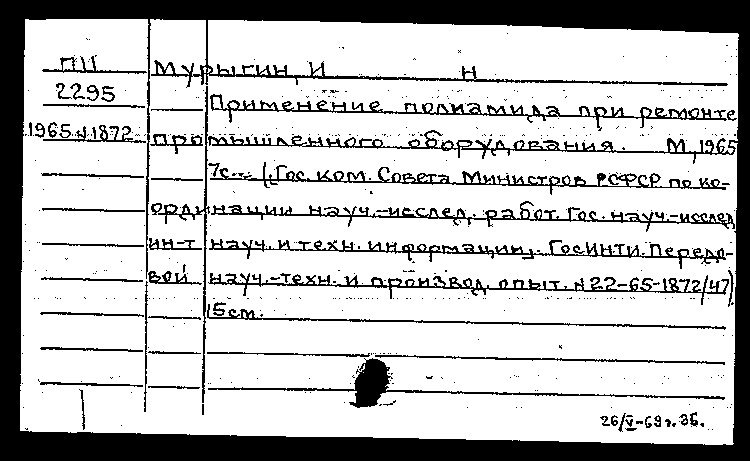 ПII Мурыгин, И Н
2295 Применение полиамида при ремонте
1965 N 1872 промышленного оборудования. М, 1965
7с. (Гос. ком. Совета Министров РСФСР по ко-
ординации науч.-исслед. работ. Гос. науч.-исслед
ин-т науч. и техн. информации. ГосИНТИ. Передо-
вой науч.-техн. и производ. опыт. N 22-65-1872/47)
15см.
26/V-69г. ЗБ.